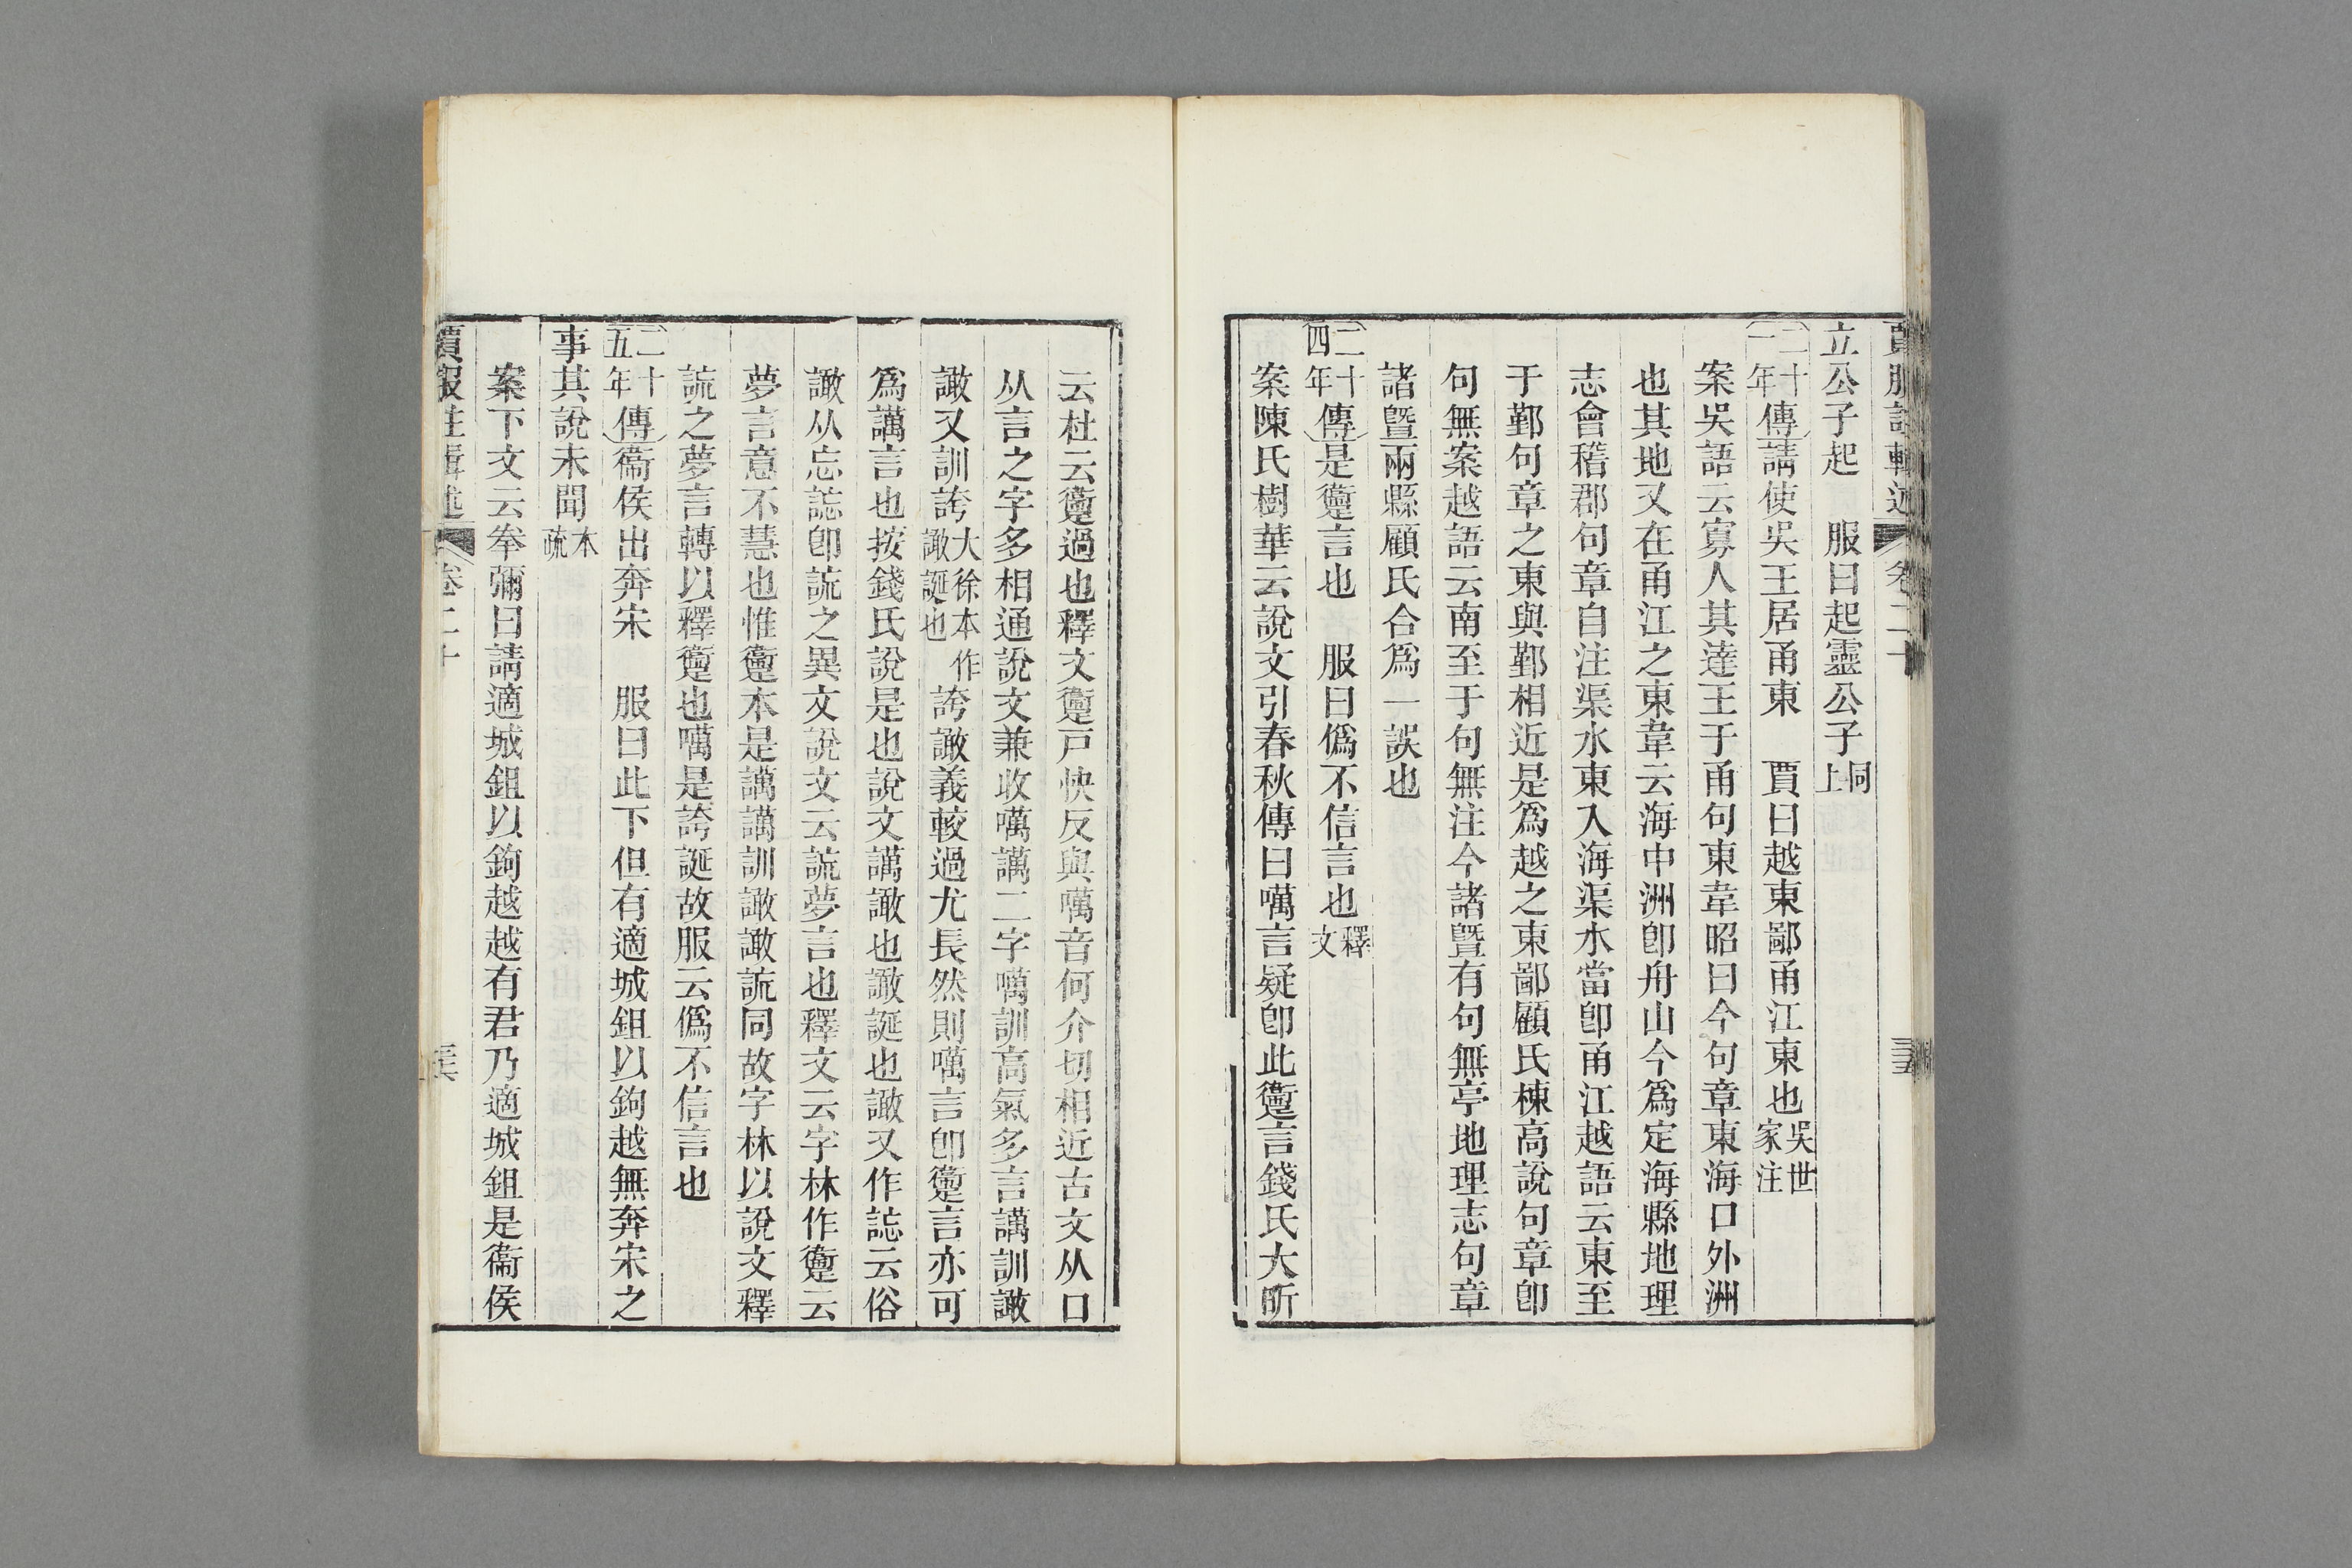 賈服註輯述　卷二十　三五
立公子起　服曰起靈公子同上
二十一年傳請使吳王居甬東　賈曰越東鄙甬江東也吳世家注
案吳語云寡人其達王于甬句東韋昭曰今句章東海口外洲
也其地又在甬江之東韋云海中洲卽舟山今爲定海縣地理
志會稽郡句章自注渠水東入海渠水當卽甬江越語云東至
于鄞句章之東與鄞相近是爲越之東鄙顧氏棟高說句章卽
句無案越語云南至于句無注今諸曁有句無亭地理志句章
諸曁兩縣顧氏合爲一誤也
二十四年傳是躗言也　服曰僞不信言也釋文
案陳氏樹華云說文引春秋傳曰噧言疑卽此躗言錢氏大昕
云杜云躗過也釋文躗戸快反與噧音何介切相近古文从口
从言之字多相通說文兼收噧讗二字噧訓高氣多言讗訓譀
譀又訓誇大徐本作譀誕也誇譀義較過尤長然則噧言卽躗言亦可
爲讗言也按錢氏說是也說文讗譀也譀誕也譀又作誌云俗
譀从忘誌卽謊之異文說文云謊夢言也釋文云字林作躗云
夢言意不慧也惟躗本是讗讗訓譀譀謊同故字林以說文釋
謊之夢言轉以釋躗也噧是誇誕故服云僞不信言也
二十五年傳衞侯出奔宋　服曰此下但有適城鉏以鉤越無奔宋之
事其說未聞本疏
案下文云拳彌曰請適城鉏以鉤越越有君乃適城鉏是衞侯
賈服註輯述　卷二十　三六